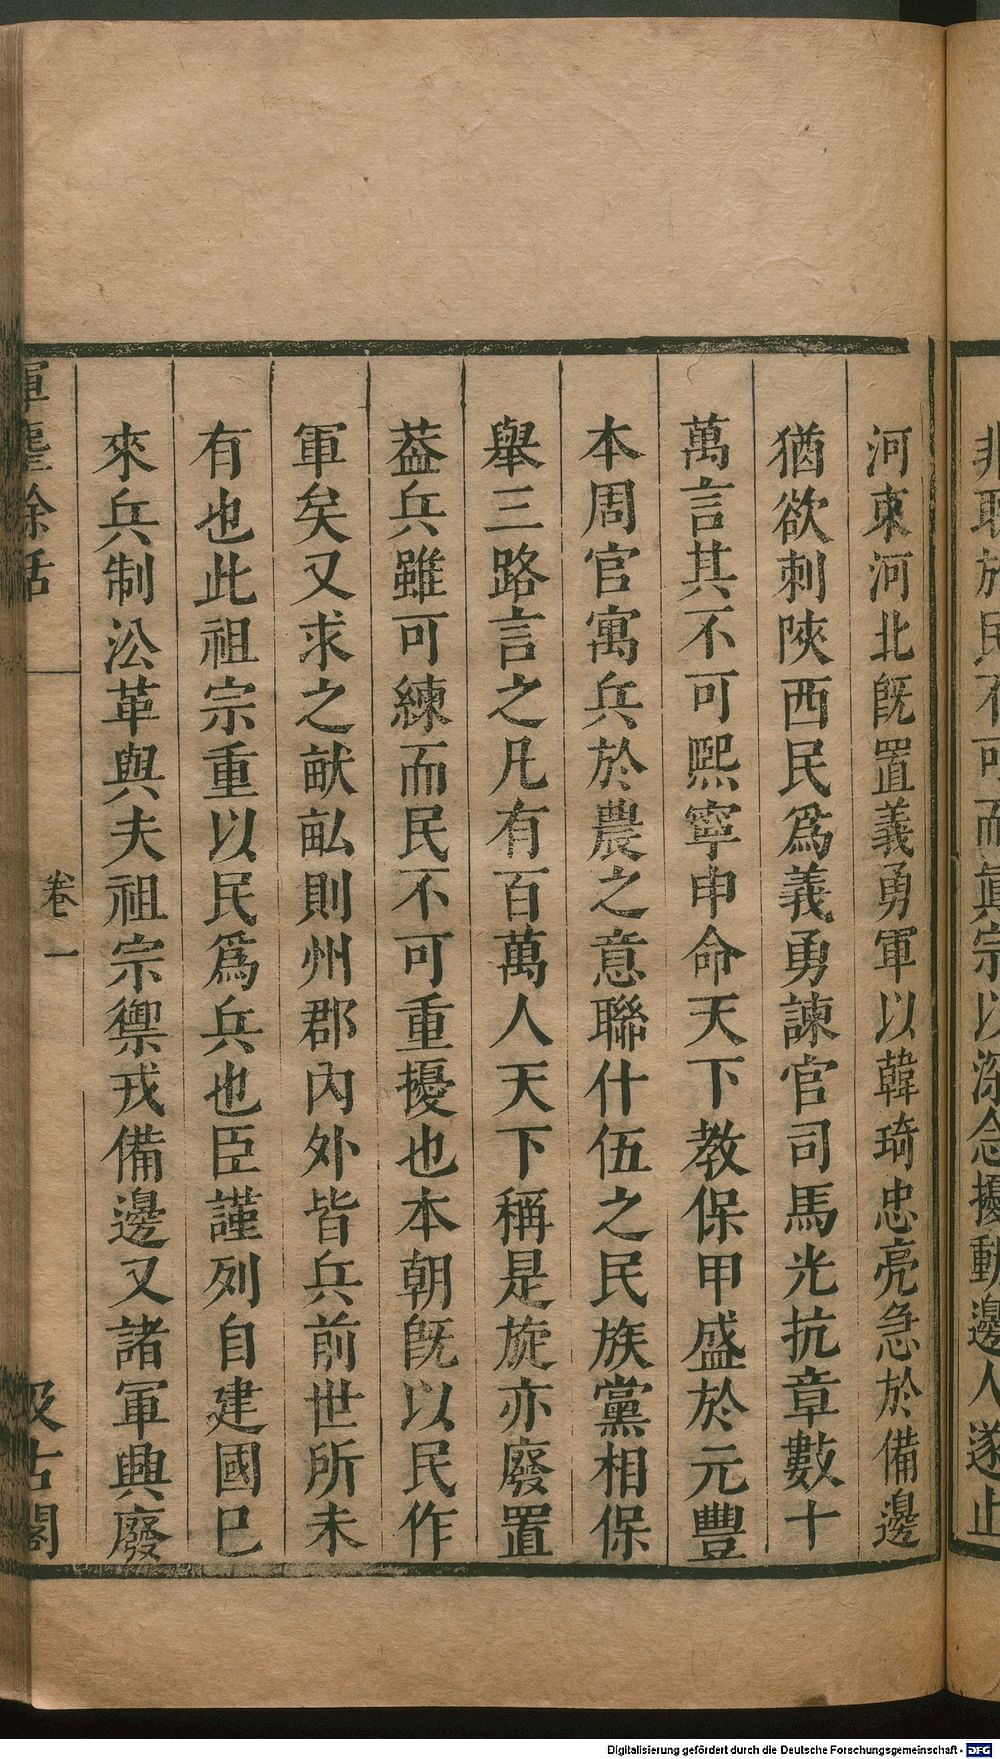 非取於民不可而眞宗以深念擾動邊人遂止
河東河北旣置義勇軍以韓琦忠亮急於備邊
猶欲刺陝西民爲義勇諫官司馬光抗章數十
萬言其不可熙寧申命天下教保甲盛於元豐
本周官寓兵於農之意聯什伍之民族黨相保
舉三路言之凡有百萬人天下稱是旋亦廢置
葢兵雖可練而民不可重擾也本朝旣以民作
軍矣又求之畎畝則州郡內外皆兵前世所未
有也此祖宗重以民爲兵也臣謹列自建國已
來兵制㳂革與夫祖宗禦戎備邊又諸軍興廢
揮麈餘話
卷一
汲古閣
Digitalisierung gefördert durch die Deutsche Forschungsgemeinschaft - DFG